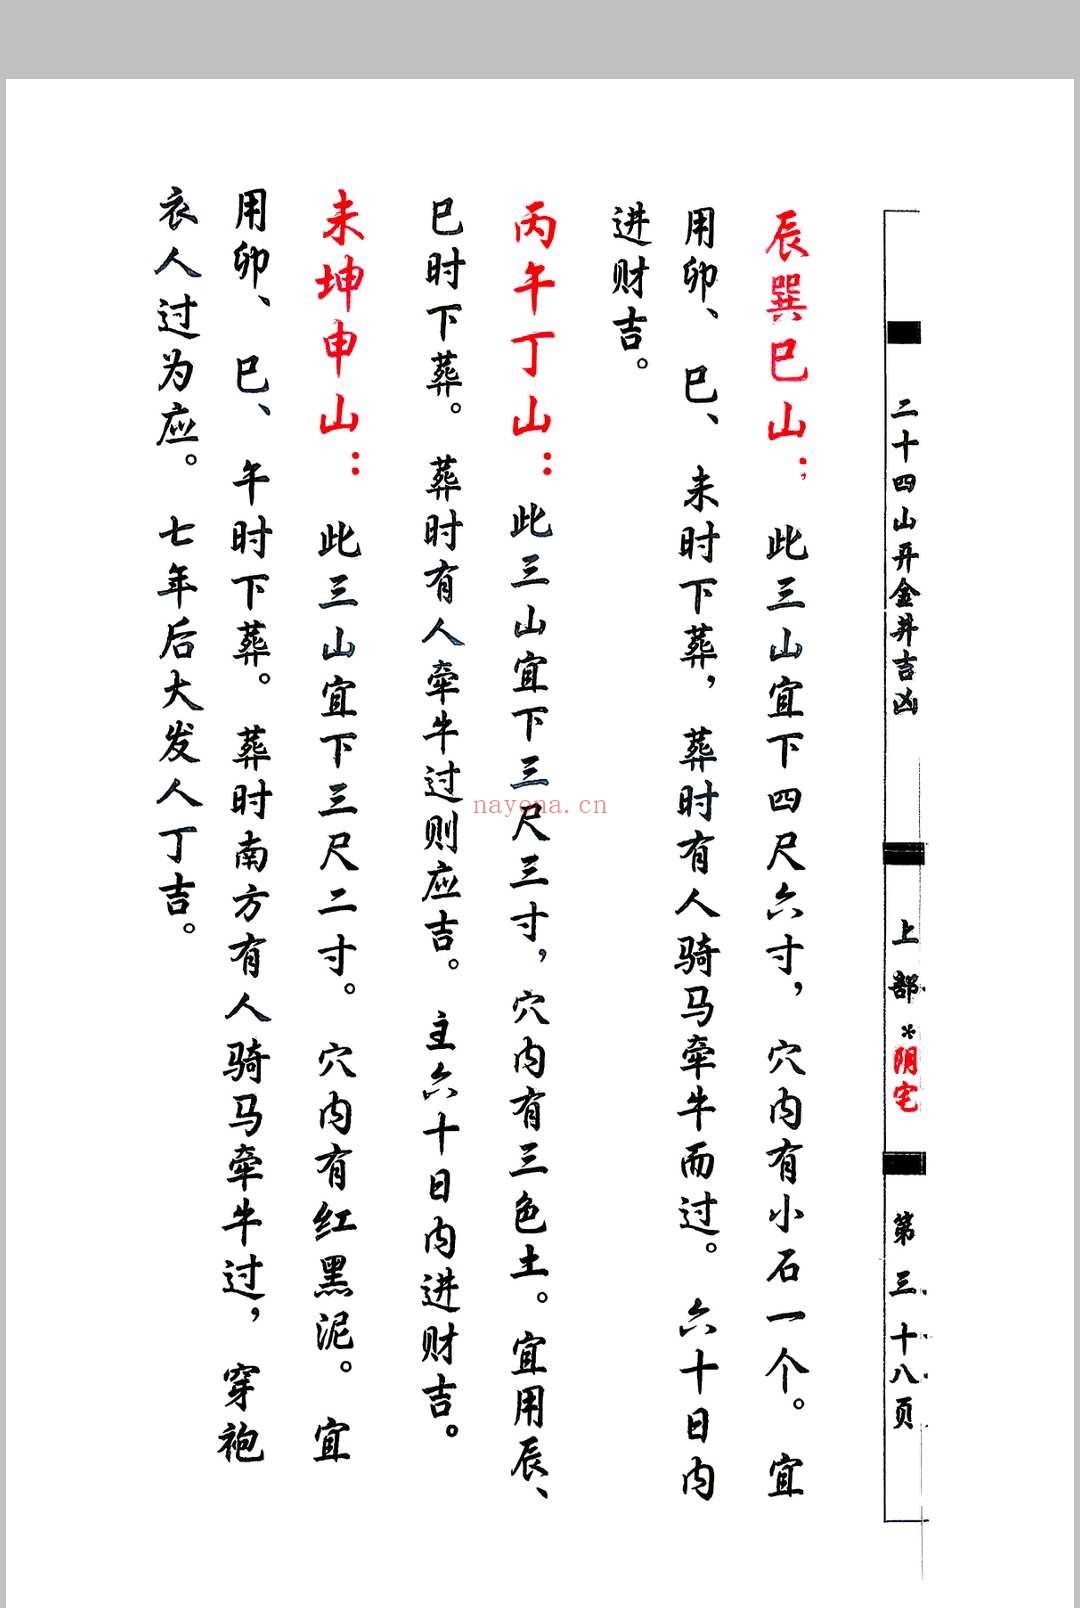 二十四山开金井吉凶 上部*阴宅 第三十八页
辰巽巳山：此三山宜下四尺六寸，穴内有小石一个。宜
用卯、巳、未时下葬，葬时有人骑马牵牛而过。六十日内
进财吉。
丙午丁山：此三山宜下三尺三寸，穴内有三色土。宜用辰、
巳时下葬。葬时有人牵牛过则应吉。主六十日内进财吉。
未坤申山：此三山宜下三尺二寸。穴内有红黑泥。宜
用卯、巳、午时下葬。葬时南方有人骑马牵牛过，穿袍
衣人过为应。七年后大发人丁吉。
nayona.cn